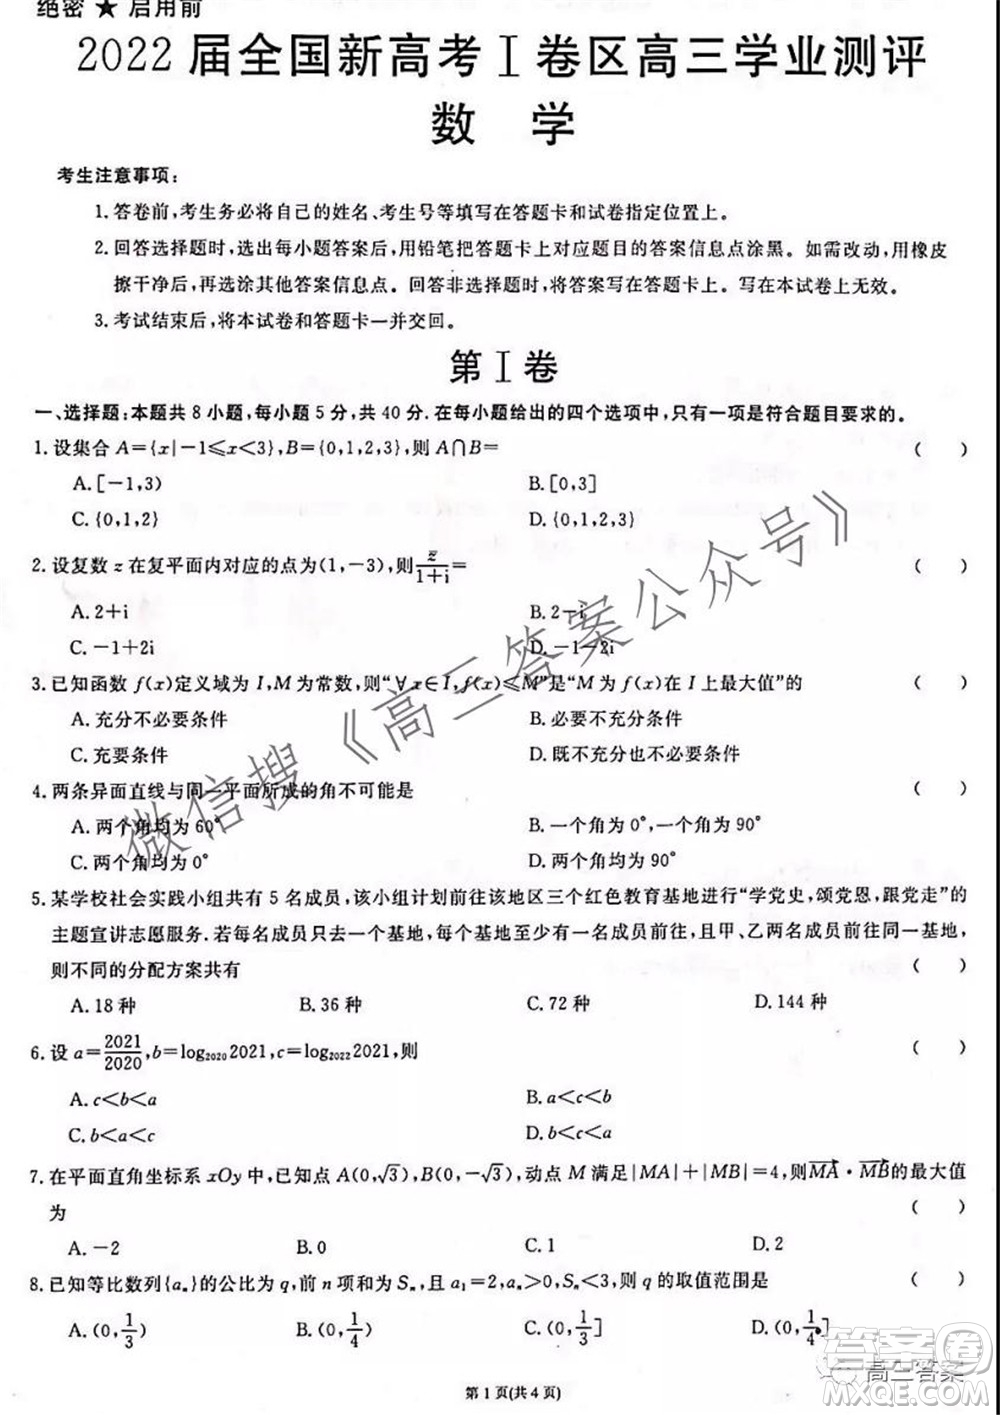 绝密 ★ 启用前
2022届全国新高考Ⅰ卷区高三学业测评
数 学
考生注意事项：
1. 答卷前,考生务必将自己的姓名、考生号等填写在答题卡和试卷指定位置上。
2. 回答选择题时,选出每小题答案后,用铅笔把答题卡上对应题目的答案信息点涂黑。如需改动,用橡皮
擦干净后,再选涂其他答案信息点。回答非选择题时,将答案写在答题卡上。写在本试卷上无效。
3. 考试结束后,将本试卷和答题卡一并交回。
第Ⅰ卷
一、选择题:本题共 8 小题,每小题 5 分,共 40 分.在每小题给出的四个选项中,只有一项是符合题目要求的。
1. 设集合 A={x|-1≤x<3},B={0,1,2,3},则 A∩B= ( )
A. [-1,3) B. [0,3]
C. {0,1,2} D. {0,1,2,3}
2. 设复数 z 在复平面内对应的点为(1,-3),则 z̄/(1+i)= ( )
A. 2+i B. 2-i
C. -1+2i D. -1-2i
3. 已知函数 f(x)定义域为 I,M 为常数,则“∀x∈I,f(x)≤M”是“M 为 f(x)在 I 上最大值”的 ( )
A. 充分不必要条件 B. 必要不充分条件
C. 充要条件 D. 既不充分也不必要条件
4. 两条异面直线与同一平面所成的角不可能是 ( )
A. 两个角均为 60° B. 一个角为 0°,一个角为 90°
C. 两个角均为 0° D. 两个角均为 90°
5. 某学校社会实践小组共有 5 名成员,该小组计划前往该地区三个红色教育基地进行“学党史,颂党恩,跟党走”的
主题宣讲志愿服务.若每名成员只去一个基地,每个基地至少有一名成员前往,且甲、乙两名成员前往同一基地,
则不同的分配方案共有 ( )
A. 18 种 B. 36 种 C. 72 种 D. 144 种
6. 设 a=2021/2020,b=log₂₀₂₀2021,c=log₂₀₂₂2021,则 ( )
A. c<b<a B. a<c<b
C. b<a<c D. b<c<a
7. 在平面直角坐标系 xOy 中,已知点 A(0,√3),B(0,-√3),动点 M 满足|MA|+|MB|=4,则MA·MB的最大值
为 ( )
A. -2 B. 0 C. 1 D. 2
8. 已知等比数列{aₙ}的公比为 q,前 n 项和为 Sₙ,且 a₁=2,aₙ>0,Sₙ<3,则 q 的取值范围是 ( )
A. (0,1/3) B. (0,1/4) C. (0,1/3] D. (0,1/4]
第 1 页(共 4 页)
微信搜《高三答案公众号》
高三答案
答案圈
MXQE.COM